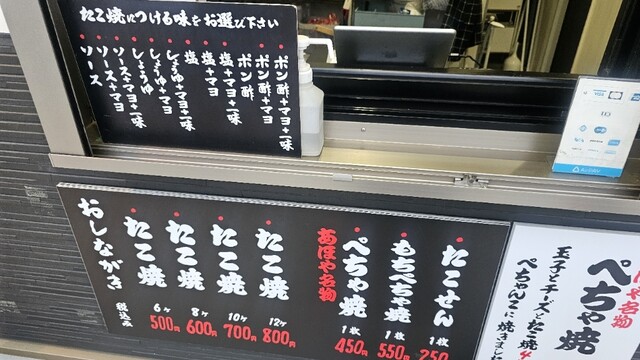 たこ焼につける味をお選び下さい
ポン酢+マヨ+一味
ポン酢+マヨ
ポン酢
塩+マヨ+一味
塩+マヨ
塩
しょうゆ+マヨ+一味
しょうゆ+マヨ
しょうゆ
ソース+マヨ+一味
ソース+マヨ
ソース
おしながき
税込み
たこ焼 6ヶ 500円
たこ焼 8ヶ 600円
たこ焼 10ヶ 700円
たこ焼 12ヶ 800円
あほや名物
ぺちゃ焼 1枚 450円
もちぺちゃ焼 1枚 550円
たこせん 1枚 250
や名物
ぺちゃ焼
玉子とチーズとたこ焼4
ぺちゃんこに焼きまし